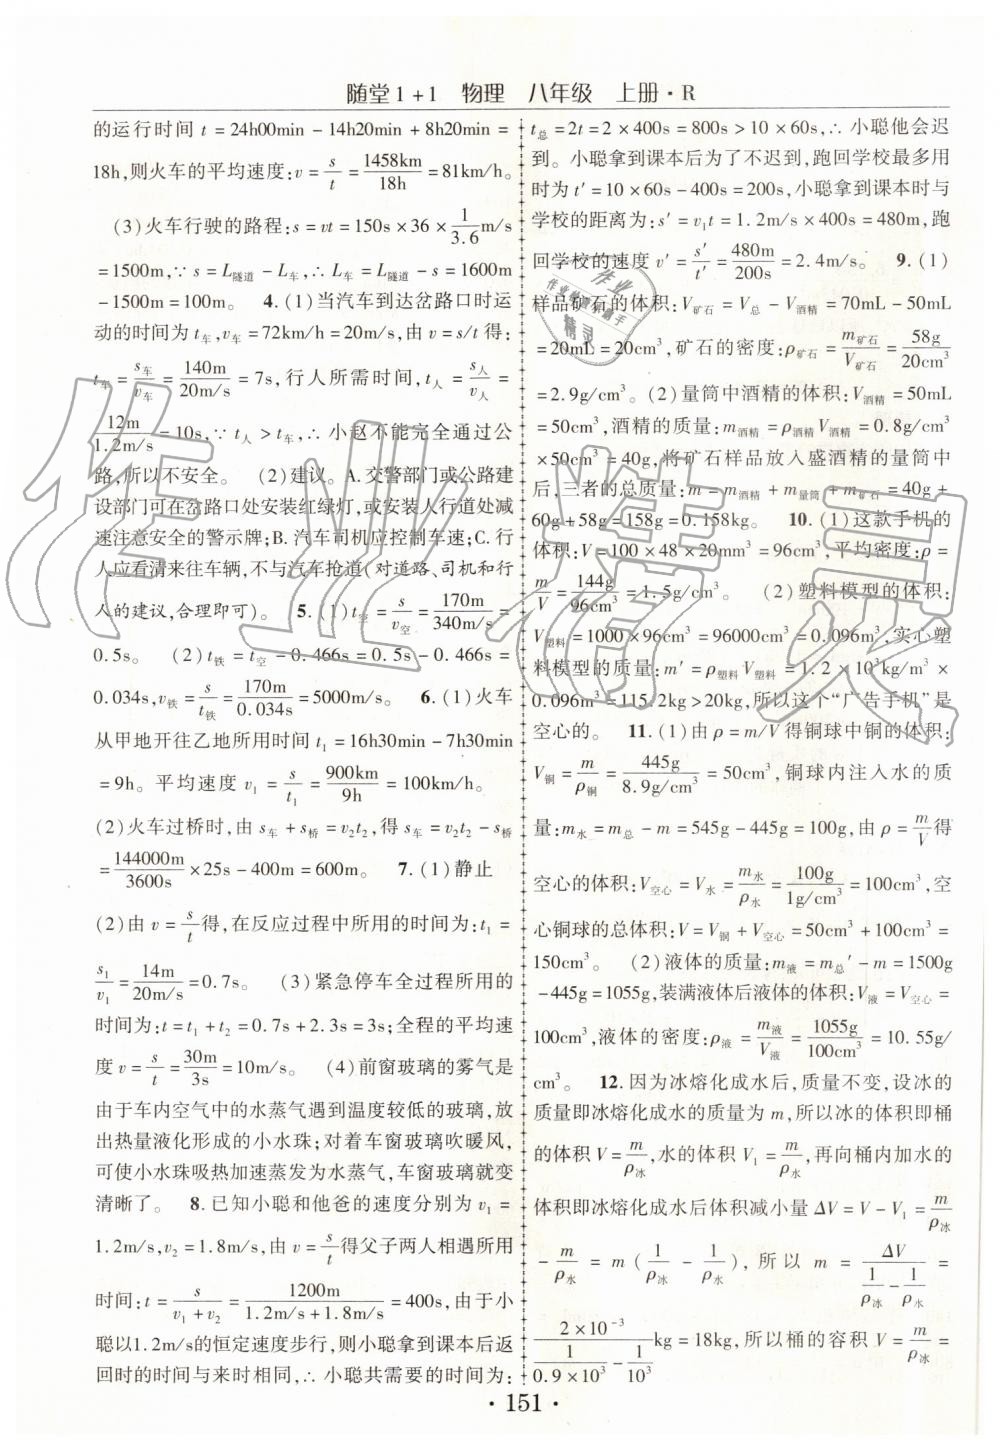 随堂1+1 物理 八年级 上册·R
的运行时间 t = 24h00min - 14h20min + 8h20min =
18h,则火车的平均速度:v = s/t = 1458km/18h = 81km/h。
(3)火车行驶的路程:s = vt = 150s × 36 × 1/3.6 m/s
= 1500m,∵ s = L隧道 - L车,∴ L车 = L隧道 - s = 1600m
- 1500m = 100m。 4. (1)当汽车到达岔路口时运
动的时间为 t车,v车 = 72km/h = 20m/s,由 v = s/t 得:
t车 = s车/v车 = 140m/20m/s = 7s,行人所需时间,t人 = s人/v人 =
12m/1.2m/s = 10s,∵ t人 > t车,∴ 小赵不能完全通过公
路,所以不安全。 (2)建议。A.交警部门或公路建
设部门可在岔路口处安装红绿灯,或安装人行道处减
速注意安全的警示牌;B.汽车司机应控制车速;C.行
人应看清来往车辆,不与汽车抢道(对道路、司机和行
人的建议,合理即可)。 5. (1)t空 = s/v空 = 170m/340m/s =
0.5s。 (2)t铁 = t空 - 0.466s = 0.5s - 0.466s =
0.034s,v铁 = s/t铁 = 170m/0.034s = 5000m/s。 6. (1)火车
从甲地开往乙地所用时间 t1 = 16h30min - 7h30min
= 9h。平均速度 v1 = s/t1 = 900km/9h = 100km/h。
(2)火车过桥时,由 s车 + s桥 = v2t2,得 s车 = v2t2 - s桥
= 144000m/3600s × 25s - 400m = 600m。 7. (1)静止
(2)由 v = s/t 得,在反应过程中所用的时间为:t1 =
s1/v1 = 14m/20m/s = 0.7s。 (3)紧急停车全过程所用的
时间为:t = t1 + t2 = 0.7s + 2.3s = 3s;全程的平均速
度 v = s/t = 30m/3s = 10m/s。 (4)前窗玻璃的雾气是
由于车内空气中的水蒸气遇到温度较低的玻璃,放
出热量液化形成的小水珠;对着车窗玻璃吹暖风,
可使小水珠吸热加速蒸发为水蒸气,车窗玻璃就变
清晰了。 8. 已知小聪和他爸的速度分别为 v1 =
1.2m/s,v2 = 1.8m/s,由 v = s/t 得父子两人相遇所用
时间:t = s/(v1 + v2) = 1200m/(1.2m/s + 1.8m/s) = 400s,由于小
聪以1.2m/s的恒定速度步行,则小聪拿到课本后返
回时的时间与来时相同,∴ 小聪共需要的时间为:
t总 = 2t = 2 × 400s = 800s > 10 × 60s,∴ 小聪他会迟
到。小聪拿到课本后为了不迟到,跑回学校最多用
时为 t′ = 10 × 60s - 400s = 200s,小聪拿到课本时与
学校的距离为:s′ = v1t = 1.2m/s × 400s = 480m,跑
回学校的速度 v′ = s′/t′ = 480m/200s = 2.4m/s。 9. (1)
样品矿石的体积:V矿石 = V总 - V酒精 = 70mL - 50mL
= 20mL = 20cm³,矿石的密度:ρ矿石 = m矿石/V矿石 = 58g/20cm³
= 2.9g/cm³。(2)量筒中酒精的体积:V酒精 = 50mL
= 50cm³,酒精的质量:m酒精 = ρ酒精V酒精 = 0.8g/cm³
× 50cm³ = 40g,将矿石样品放入盛酒精的量筒中
后,三者的总质量:m = m酒精 + m量筒 + m矿石 = 40g +
60g + 58g = 158g = 0.158kg。 10. (1)这款手机的
体积:V = 100 × 48 × 20mm³ = 96cm³,平均密度:ρ =
m/V = 144g/96cm³ = 1.5g/cm³。 (2)塑料模型的体积:
V塑料 = 1000 × 96cm³ = 96000cm³ = 0.096m³,实心塑
料模型的质量:m′ = ρ塑料V塑料 = 1.2 × 10³kg/m³ ×
0.096m³ = 115.2kg > 20kg,所以这个“广告手机”是
空心的。 11. (1)由 ρ = m/V 得铜球中铜的体积:
V铜 = m/ρ铜 = 445g/8.9g/cm³ = 50cm³,铜球内注入水的质
量:m水 = m总 - m = 545g - 445g = 100g,由 ρ = m/V 得
空心的体积:V空心 = V水 = m水/ρ水 = 100g/1g/cm³ = 100cm³,空
心铜球的总体积:V = V铜 + V空心 = 50cm³ + 100cm³ =
150cm³。 (2)液体的质量:m液 = m总′ - m = 1500g
- 445g = 1055g,装满液体后液体的体积:V液 = V空心 =
100cm³,液体的密度:ρ液 = m液/V液 = 1055g/100cm³ = 10.55g/
cm³。 12. 因为冰熔化成水后,质量不变,设冰的
质量即冰熔化成水的质量为 m,所以冰的体积即桶
的体积 V = m/ρ冰,水的体积 V1 = m/ρ水,再向桶内加水的
体积即冰熔化成水后体积减小量 ΔV = V - V1 = m/ρ冰
- m/ρ水 = m(1/ρ冰 - 1/ρ水),所以 m = ΔV/(1/ρ冰 - 1/ρ水) =
2×10⁻³/(1/0.9×10³ - 1/10³) kg = 18kg,所以桶的容积 V = m/ρ冰 =
·151·
作业精灵